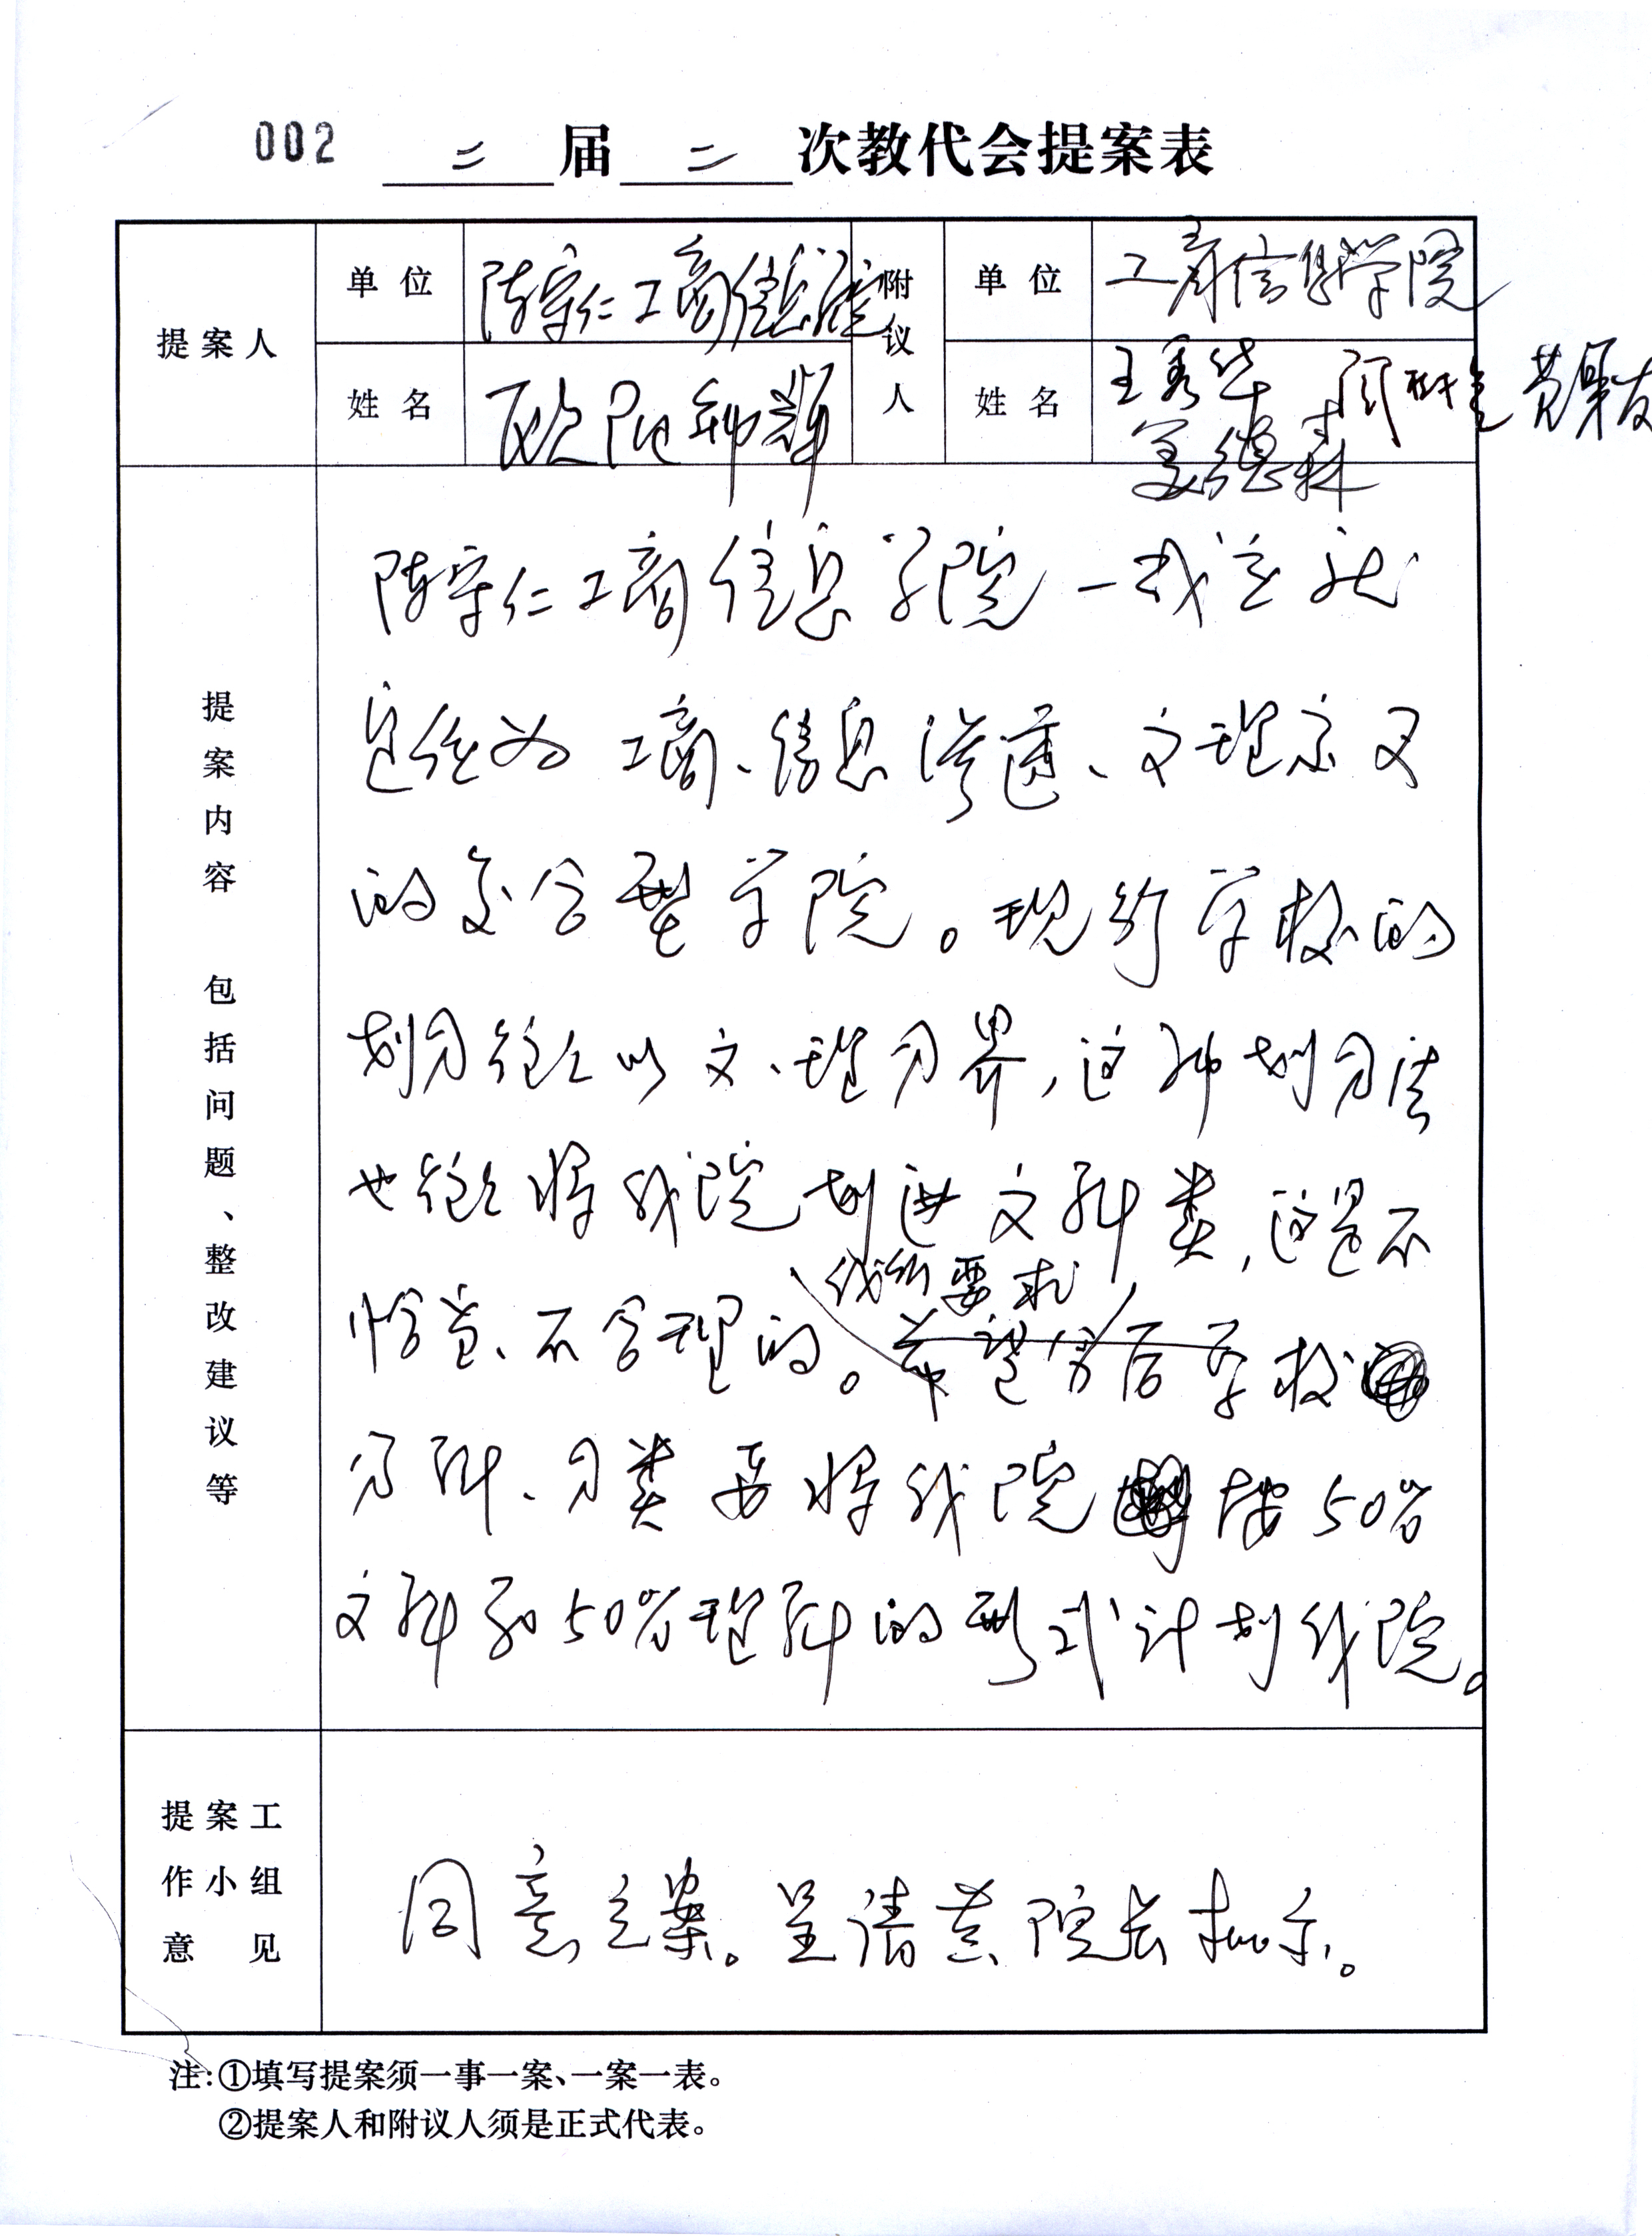 002 二届二次教代会提案表
提案人
单位 陈守仁工商信息学院
姓名 欧阳钟辉
附议人
单位 工商信息学院
姓名 王秀华
姜德森
陈守仁工商信息学院一成立就
定位为工商、信息渗透、文理交叉
的复合型学院。现行学校的
划分往往以文、理分界,这种划分法
也往往将我院划进文科类,这是不
恰当、不合理的。我们要求,希望今后学校
分科、分类要将我院按50%
文科和50%理科的形式计划我院。
提案内容 包括问题、整改建议等
提案工
作小组
意见
同意立案。呈请黄院长批示。
注:①填写提案须一事一案、一案一表。
②提案人和附议人须是正式代表。